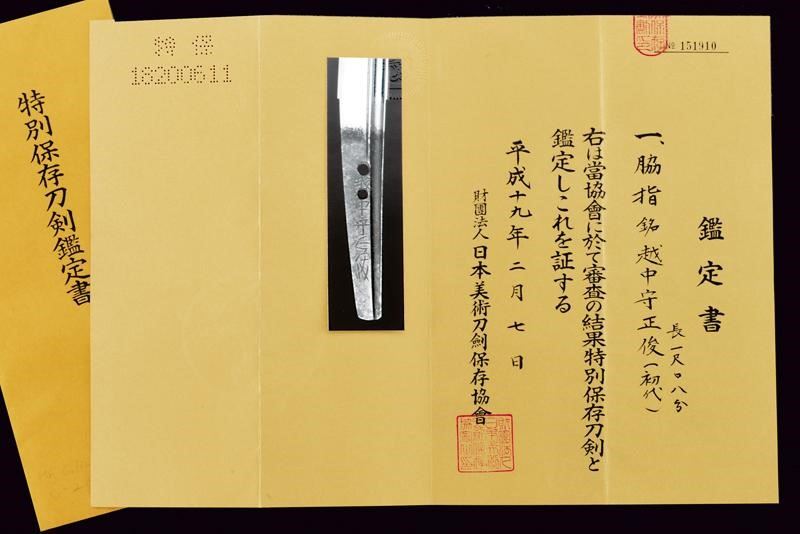 特別保存刀剣鑑定書
特保
18200611
№ 151910
鑑定書
一、脇指 銘 越中守正俊(初代)
長一尺口八分
右は當協會に於て審査の結果特別保存刀剣と
鑑定しこれを証する
平成十九年二月七日
財團法人 日本美術刀劍保存協會